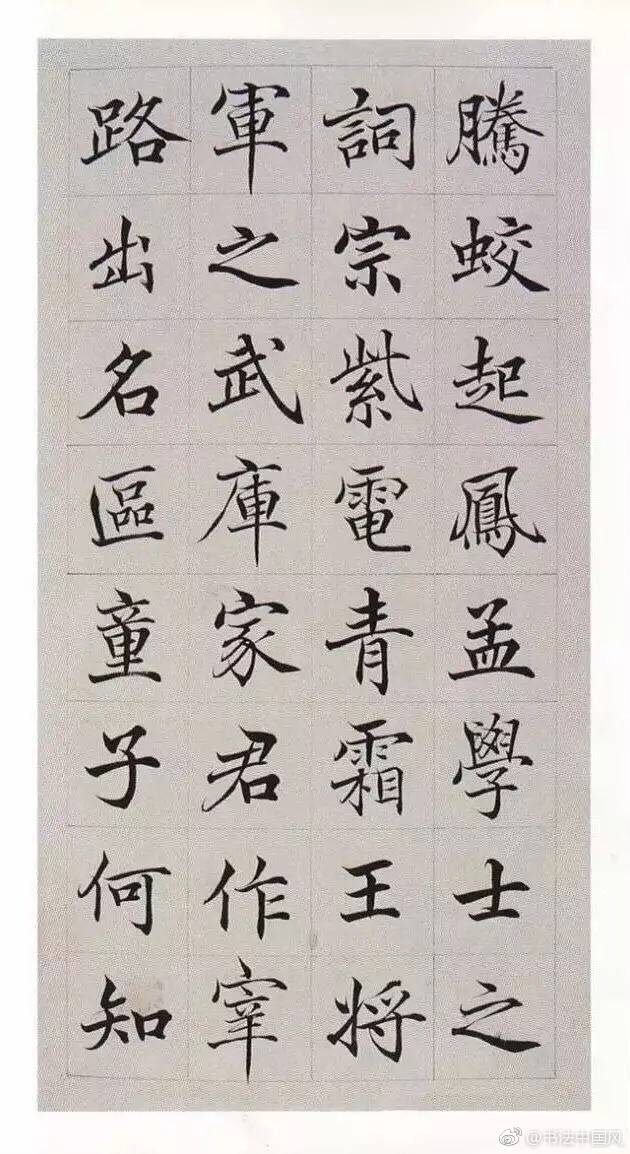 騰蛟起鳳孟學士之
詞宗紫電青霜王將
軍之武庫家君作宰
路出名區童子何知
@书法中国网